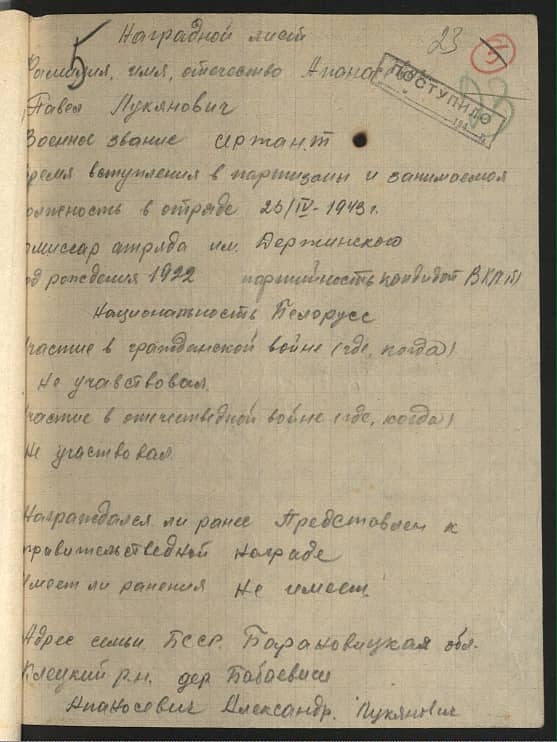 5 Наградной лист 23
Фамилия, имя, отечество
ПОСТУПИЛО
Павел Лукянович
Военное звание сержант
время вступления в партизаны и занимаемая
олжность в отряде 25/IV-1943 г.
омиссар атряда им. Держинского
од рождения 1922 партийность кондидат ВКП(б)
Национальность Белорусс
частие в гражданской войне (где, когда)
Не учавствовал.
частие в отечественной войне (где, когда)
Не участвовал.
Награждался ли ранее Представлен к
правительственной награде
имеет ли ранения Не имеет.
Адрес семьи БССР. Барановицкая обл.
Клецкий р.н. дер Бабаевичи
Апаносевич Александр. Лукянович